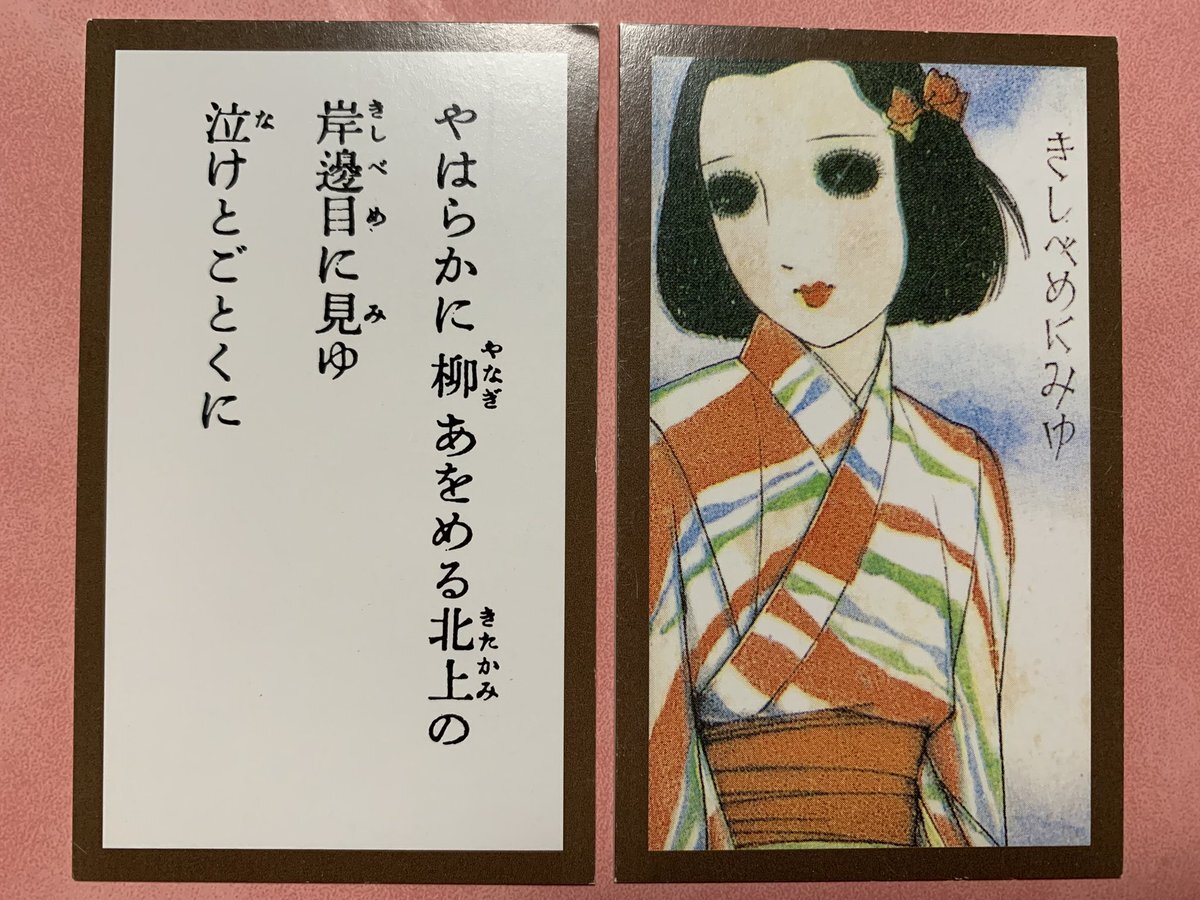 やはらかに柳あをめる北上の
やなぎ
きたかみ
岸邊目に見ゆ
きしべめ
み
泣けとごとくに
な
きしべめにみゆ